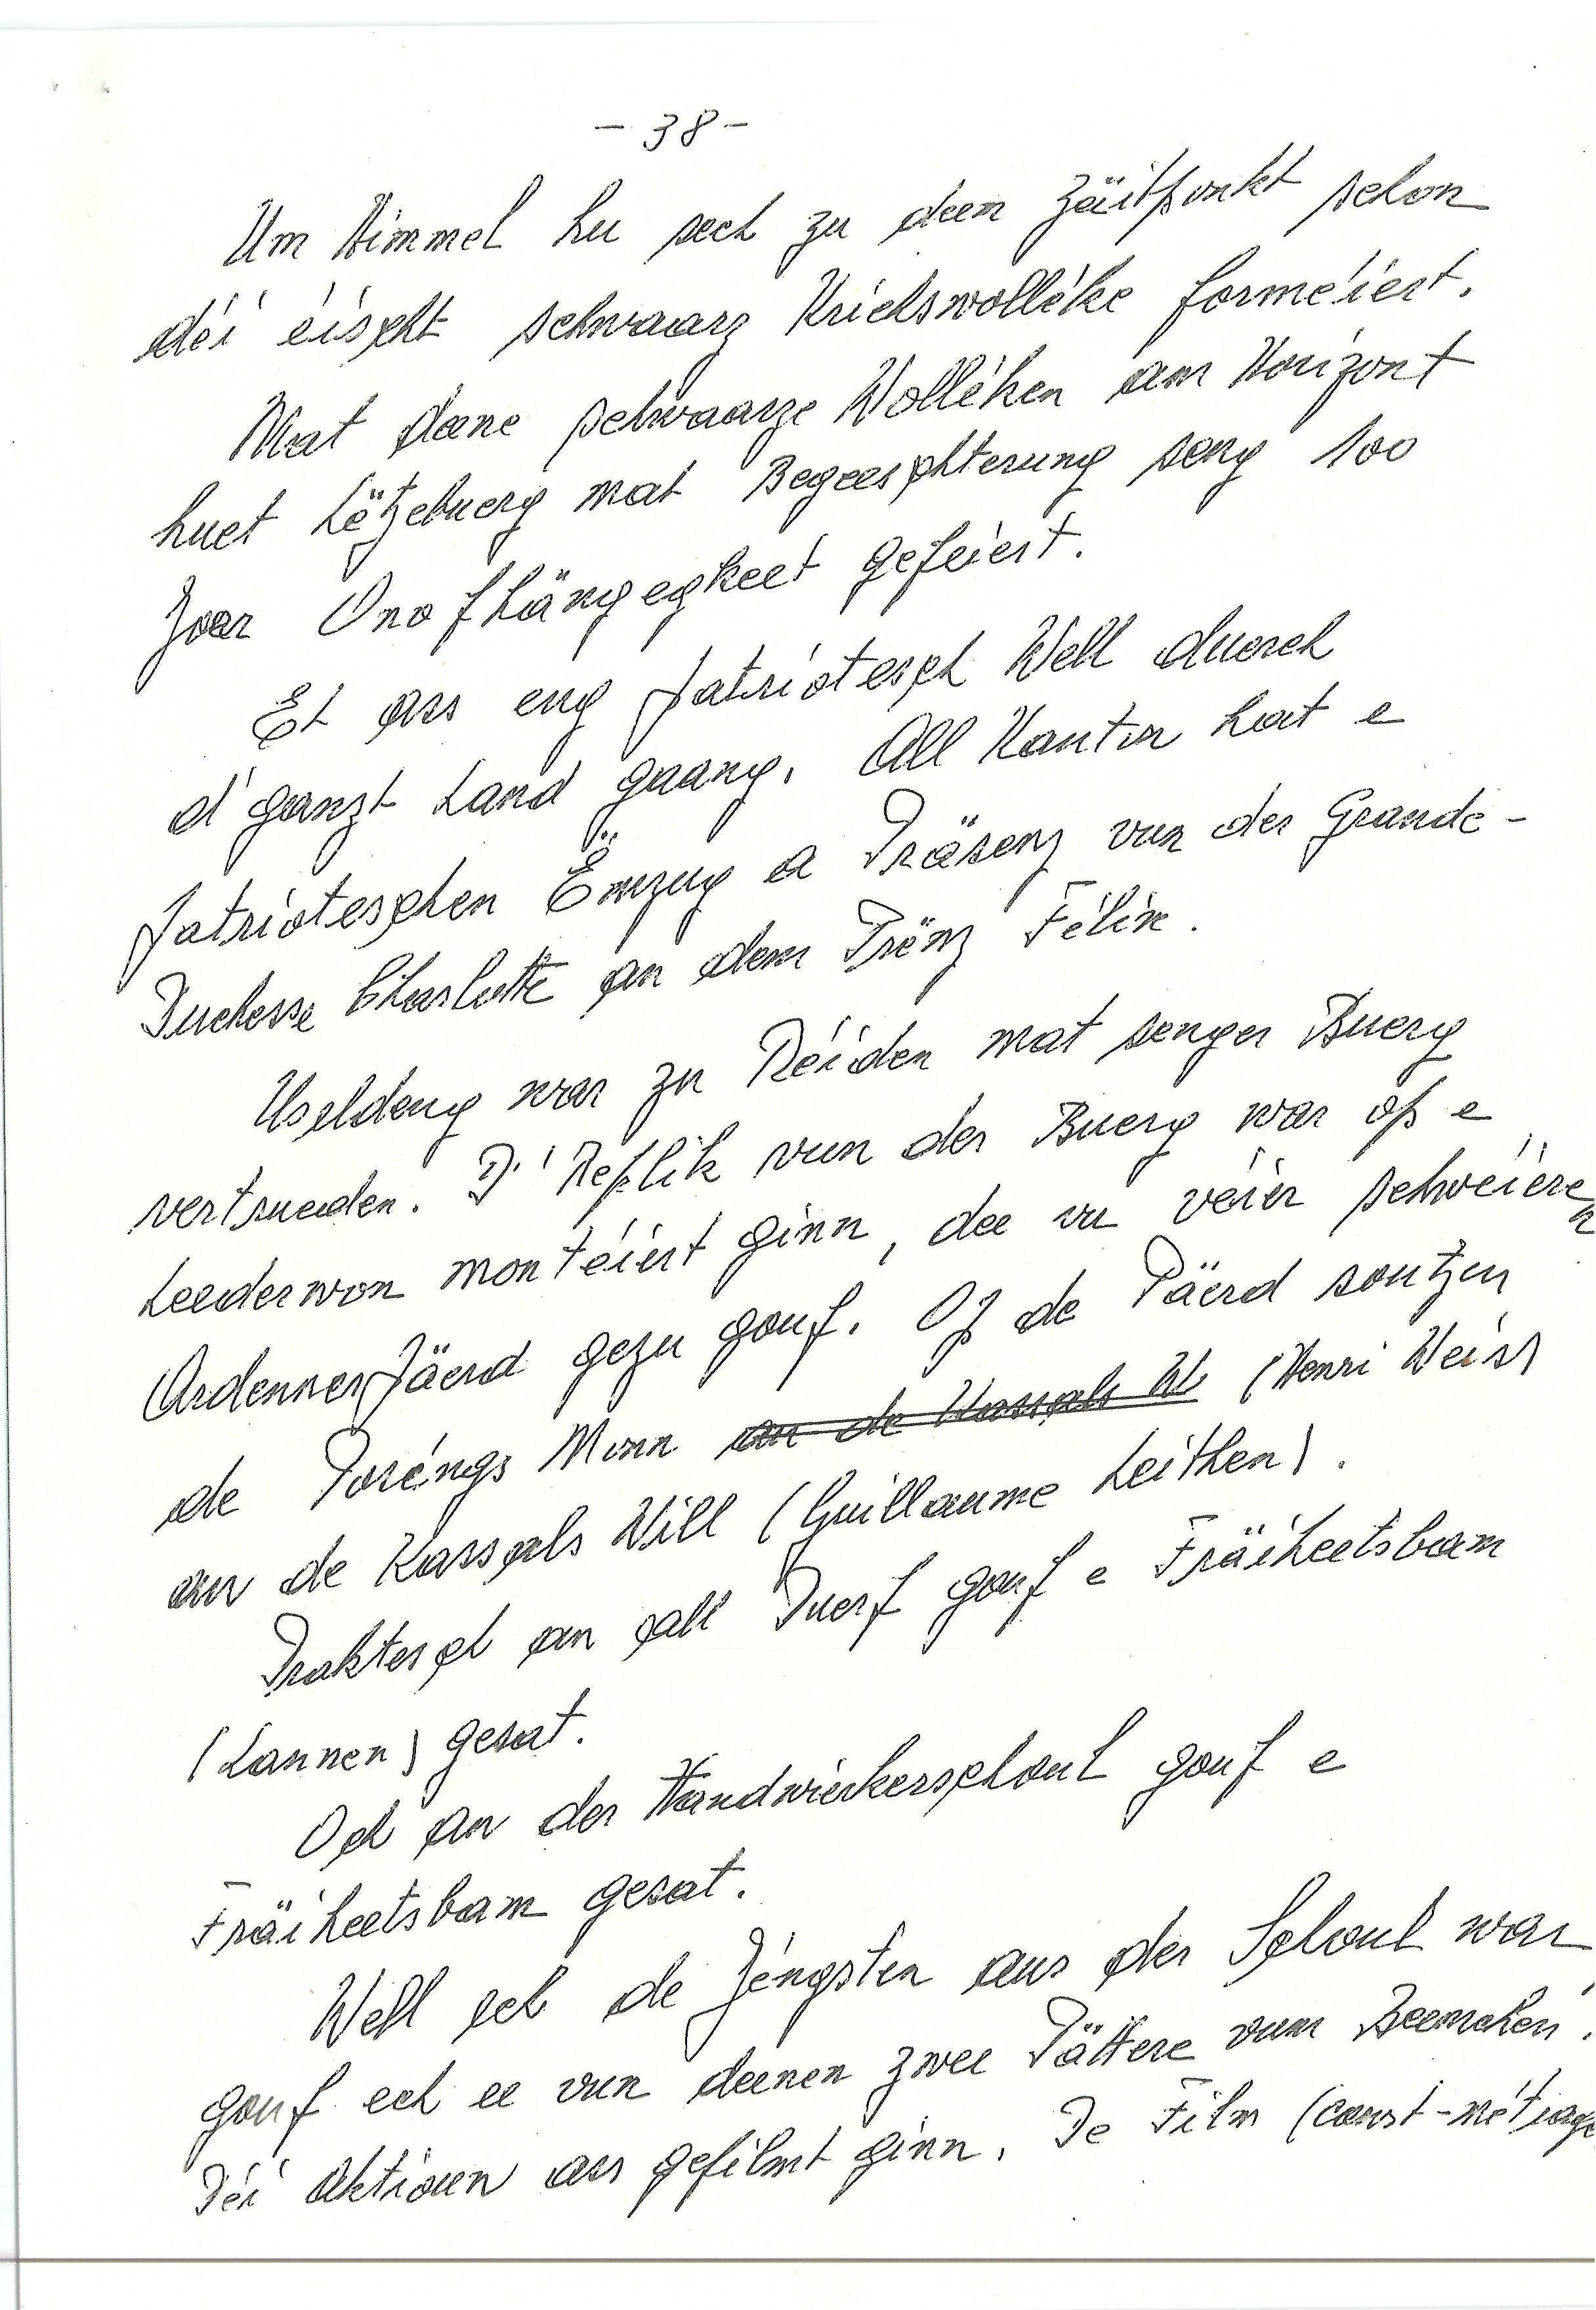 - 38 -
Um Himmel hu sech zu deem Zäitpunkt schon
déi éischt schwaarz Krichswolléke forméiert.
Mat deene schwaarze Wolléken am Horizont
huet Lëtzebuerg mat Begeeschterung seng 100
Joer Onofhängegkeet gefeiert.
Et ass eng patriotesch Well duerch
d'ganzt Land gaang. All Kanton hat e
patrioteschen Ëmzug a Präsenz vun der Grande-
Duchesse Charlotte an dem Prënz Félix.
Useldeng war zu Réiden mat senger Buerg
vertrueden. D'Replik vun der Buerg war op e
Leederwon montéiert ginn, dee vu véier schwéieren
Ardennerpäerd gezu gouf. Op de Päerd soutzen
de Poréngs Monn an de Kassals W (Henri Weis)
an de Kassals Will (Guillaume Leithen).
Praktesch an all Duerf gouf e Fräiheetsbam
(Lannen) gesat.
Och an der Handwierkerschoul gouf e
Fräiheetsbam gesat.
Well ech de Jéngsten aus der Schoul war,
gouf ech ee vun deenen zwee Pättere vum Beemchen.
Déi Aktioun ass gefilmt ginn. De Film (court-métrage